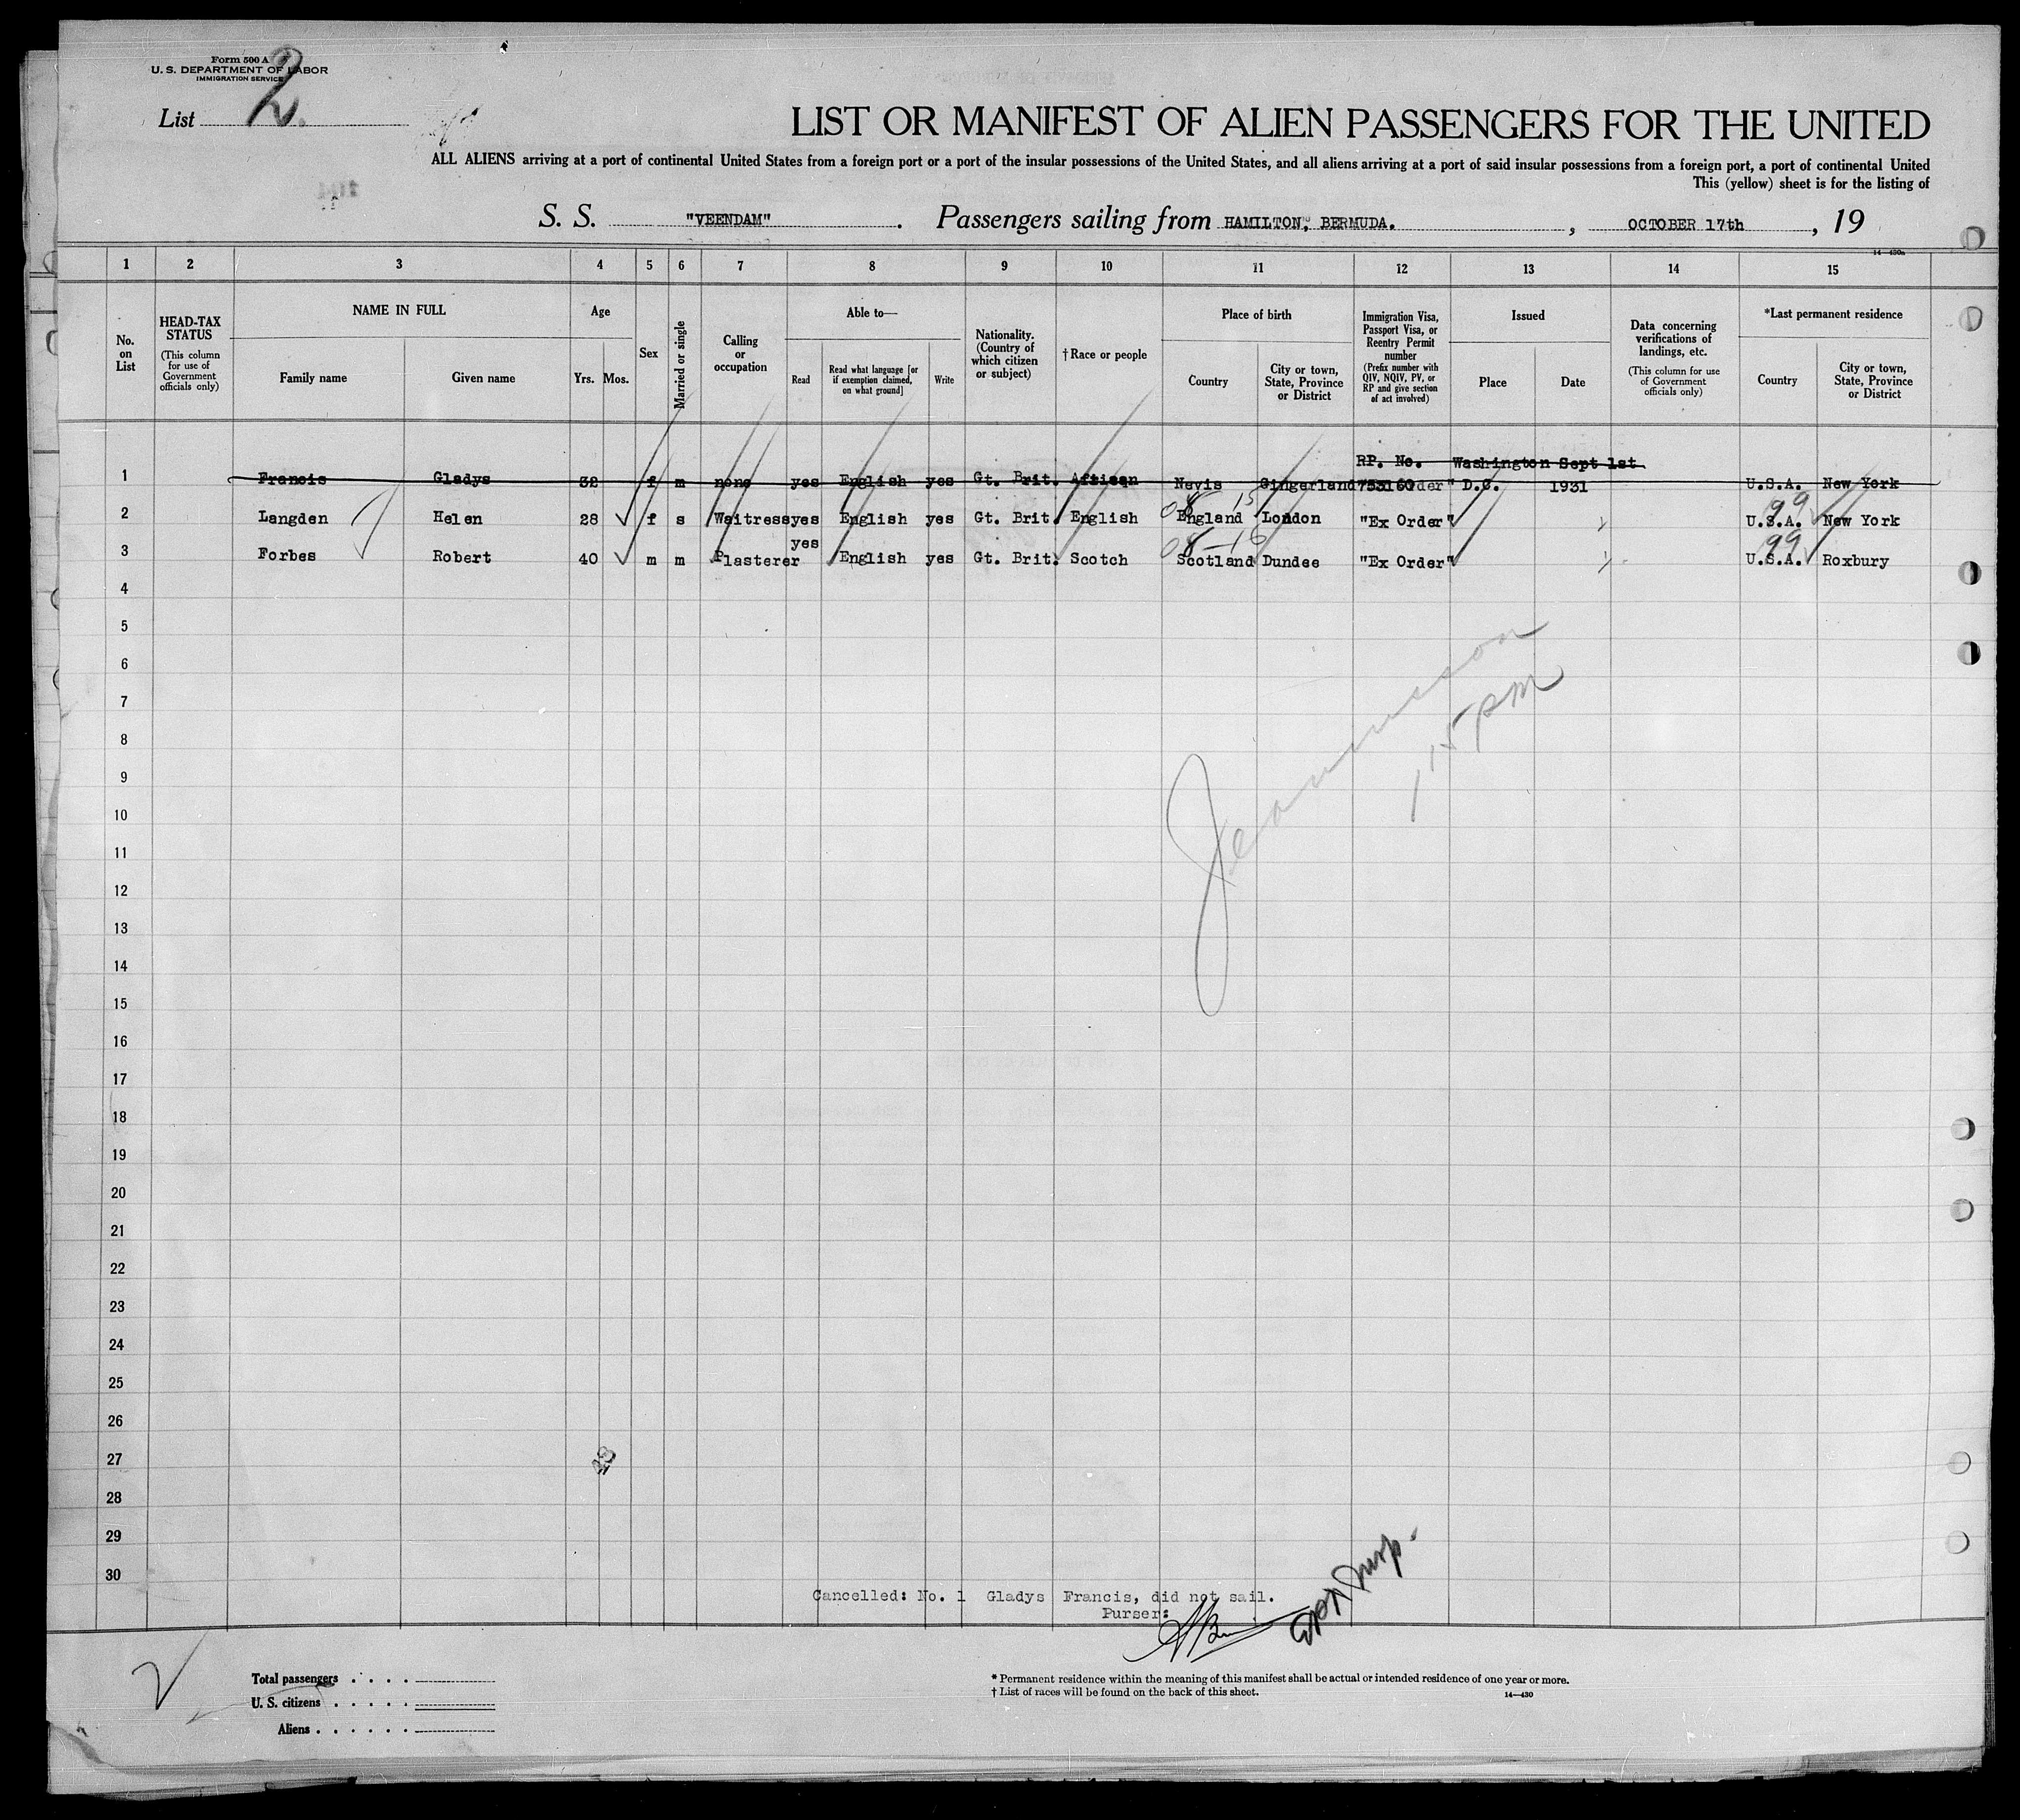 Form 500 A
U. S. DEPARTMENT OF LABOR
IMMIGRATION SERVICE
List 2
LIST OR MANIFEST OF ALIEN PASSENGERS FOR THE UNITED
ALL ALIENS arriving at a port of continental United States from a foreign port or a port of the insular possessions of the United States, and all aliens arriving at a port of said insular possessions from a foreign port, a port of continental United
This (yellow) sheet is for the listing of
S. S. "VEENDAM". Passengers sailing from HAMILTON, BERMUDA. , OCTOBER 17th , 19
14—430a
1 2 3 4 5 6 7 8 9 10 11 12 13 14 15
No. on List
HEAD-TAX STATUS (This column for use of Government officials only)
NAME IN FULL
Family name Given name
Age
Yrs. Mos.
Sex
Married or single
Calling or occupation
Able to—
Read
Read what language [or if exemption claimed, on what ground]
Write
Nationality. (Country of which citizen or subject)
† Race or people
Place of birth
Country
City or town, State, Province or District
Immigration Visa, Passport Visa, or Reentry Permit number (Prefix number with QIV, NQIV, PV, or RP and give section of act involved)
Issued
Place Date
Data concerning verifications of landings, etc. (This column for use of Government officials only)
*Last permanent residence
Country
City or town, State, Province or District
RP. No. Washington Sept 1st
1 Francis Gladys 32 f m none yes English yes Gt. Brit. African Nevis Gingerland D.C. 1931 U.S.A. New York
08 15 99
2 Langden Helen 28 f s Waitress yes English yes Gt. Brit. English England London "Ex Order" U.S.A. New York
08-16 99
3 Forbes Robert 40 m m Plasterer yes English yes Gt. Brit. Scotch Scotland Dundee "Ex Order" U.S.A. Roxbury
4
5
6
7
8
9
10
11
12
13
14
15
16
17
18
19
20
21
22
23
24
25
26
27
28
29
30
1 15 pm
Cancelled: No. 1 Gladys Francis, did not sail.
Purser:
2
Total passengers . . . .
U. S. citizens . . . . .
Aliens . . . . . .
* Permanent residence within the meaning of this manifest shall be actual or intended residence of one year or more.
† List of races will be found on the back of this sheet.
14—430